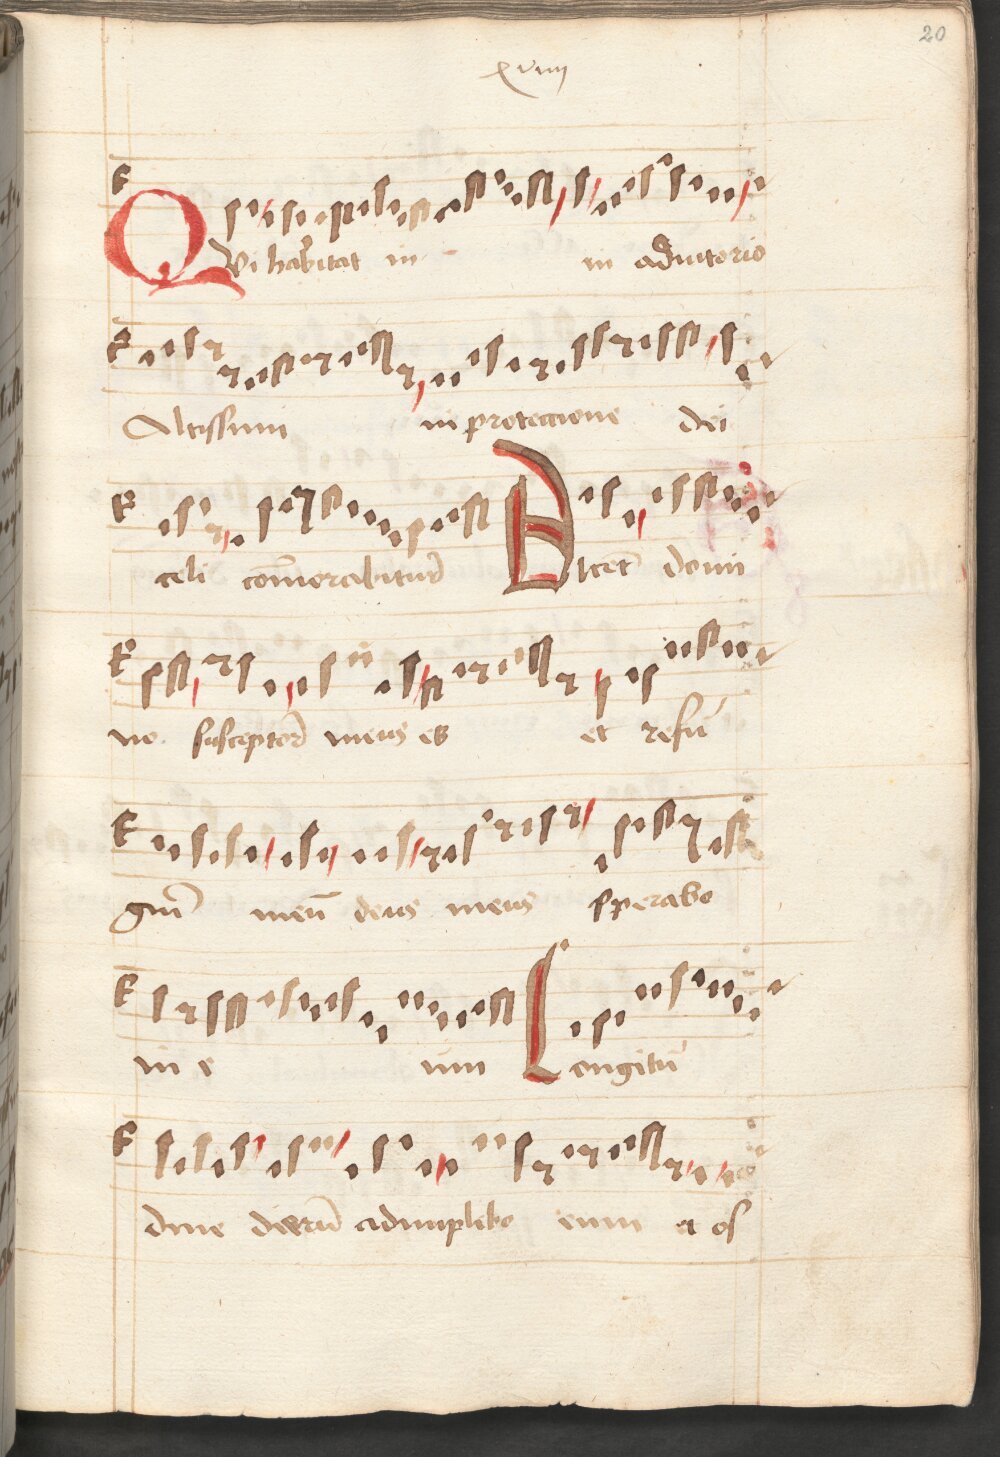 20
xviiij
Qvi habitat in in adiutorio
Altissimi in protectione dei
celi com̄orabitur Dicet domi
no susceptor meus es et refu
giū meū deus meus sperabo
in e um Longitu
dine dierū adimplebo eum et os